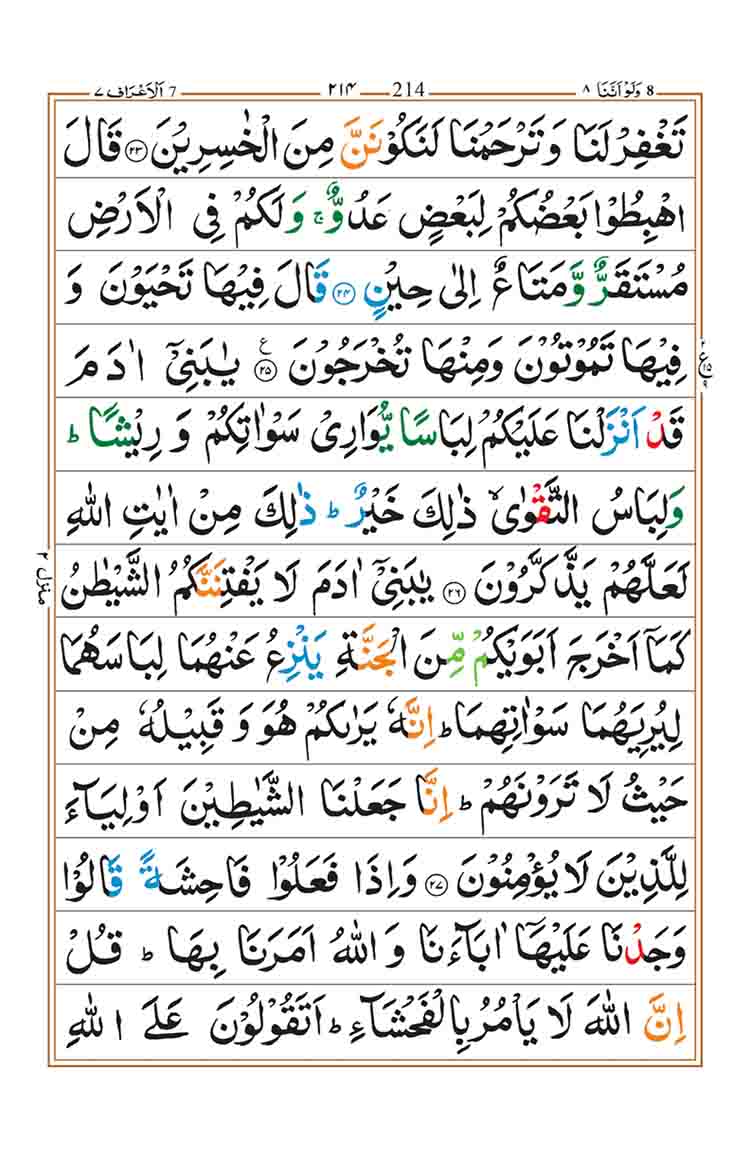 ٨ وَلَوْ اَنَّنَا 8 214 ٢١٤ اَلْاَعْرَاف ٧ 7
تَغْفِرْ لَنَا وَتَرْحَمْنَا لَنَكُوْنَنَّ مِنَ الْخٰسِرِيْنَ ۝٢٣ قَالَ
اهْبِطُوْا بَعْضُكُمْ لِبَعْضٍ عَدُوٌّ ۚ وَلَكُمْ فِى الْاَرْضِ
مُسْتَقَرٌّ وَّمَتَاعٌ اِلٰى حِيْنٍ ۝٢٤ قَالَ فِيْهَا تَحْيَوْنَ وَ
فِيْهَا تَمُوْتُوْنَ وَمِنْهَا تُخْرَجُوْنَ ۝٢٥ ع يٰبَنِىْٓ اٰدَمَ
قَدْ اَنْزَلْنَا عَلَيْكُمْ لِبَاسًا يُّوَارِىْ سَوْاٰتِكُمْ وَ رِيْشًا ؕ
وَلِبَاسُ التَّقْوٰى ۙ ذٰلِكَ خَيْرٌ ؕ ذٰلِكَ مِنْ اٰيٰتِ اللّٰهِ
لَعَلَّهُمْ يَذَّكَّرُوْنَ ۝٢٦ يٰبَنِىْٓ اٰدَمَ لَا يَفْتِنَنَّكُمُ الشَّيْطٰنُ
كَمَآ اَخْرَجَ اَبَوَيْكُمْ مِّنَ الْجَنَّةِ يَنْزِعُ عَنْهُمَا لِبَاسَهُمَا
لِيُرِيَهُمَا سَوْاٰتِهِمَا ؕ اِنَّهٗ يَرٰىكُمْ هُوَ وَ قَبِيْلُهٗ مِنْ
حَيْثُ لَا تَرَوْنَهُمْ ؕ اِنَّا جَعَلْنَا الشَّيٰطِيْنَ اَوْلِيَآءَ
لِلَّذِيْنَ لَا يُؤْمِنُوْنَ ۝٢٧ وَاِذَا فَعَلُوْا فَاحِشَةً قَالُوْا
وَجَدْنَا عَلَيْهَآ اٰبَآءَنَا وَ اللّٰهُ اَمَرَنَا بِهَا ؕ قُلْ
اِنَّ اللّٰهَ لَا يَاْمُرُ بِالْفَحْشَآءِ ؕ اَتَقُوْلُوْنَ عَلَى اللّٰهِ
منزل ٢